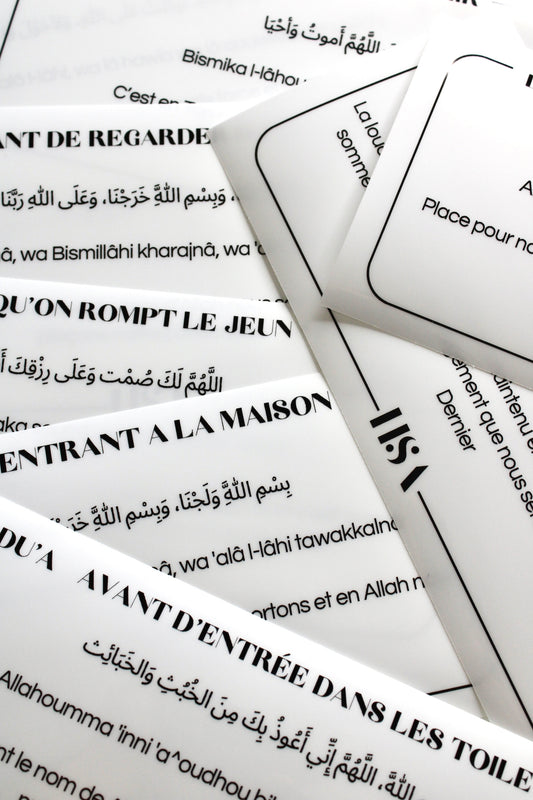 اللَّهُمَّ أَموتُ وَأَحْيَا
Bismika l-lâhou
C'est en
ANT DE REGARDE
، وَبِسْمِ اللهِ خَرَجْنَا، وَعَلَى اللهِ رَبَّنَا
wa Bismillâhi kharajnâ, wa
QU'ON ROMPT LE JEUN
اللَّهُمَّ لَكَ صُمْت وَعَلَى رِزْقِكَ
ENTRANT A LA MAISON
بِسْمِ اللهِ وَلَجْنَا، وَبِسْمِ اللهِ
wa 'alâ l-lâhi tawakkaln
ortons et en Allah
DU'A AVANT D'ENTRÉE DANS LES TOILE
اللَّهُمَّ إِنِّي أَعُوذُ بِكَ مِنَ الخُبُثِ وَالخَبَائِث
Allahoumma 'inni 'a^oudhou
nt le nom de
La lou
somme
Place pour
IISA
maintenu
ement que nous se
Dernier